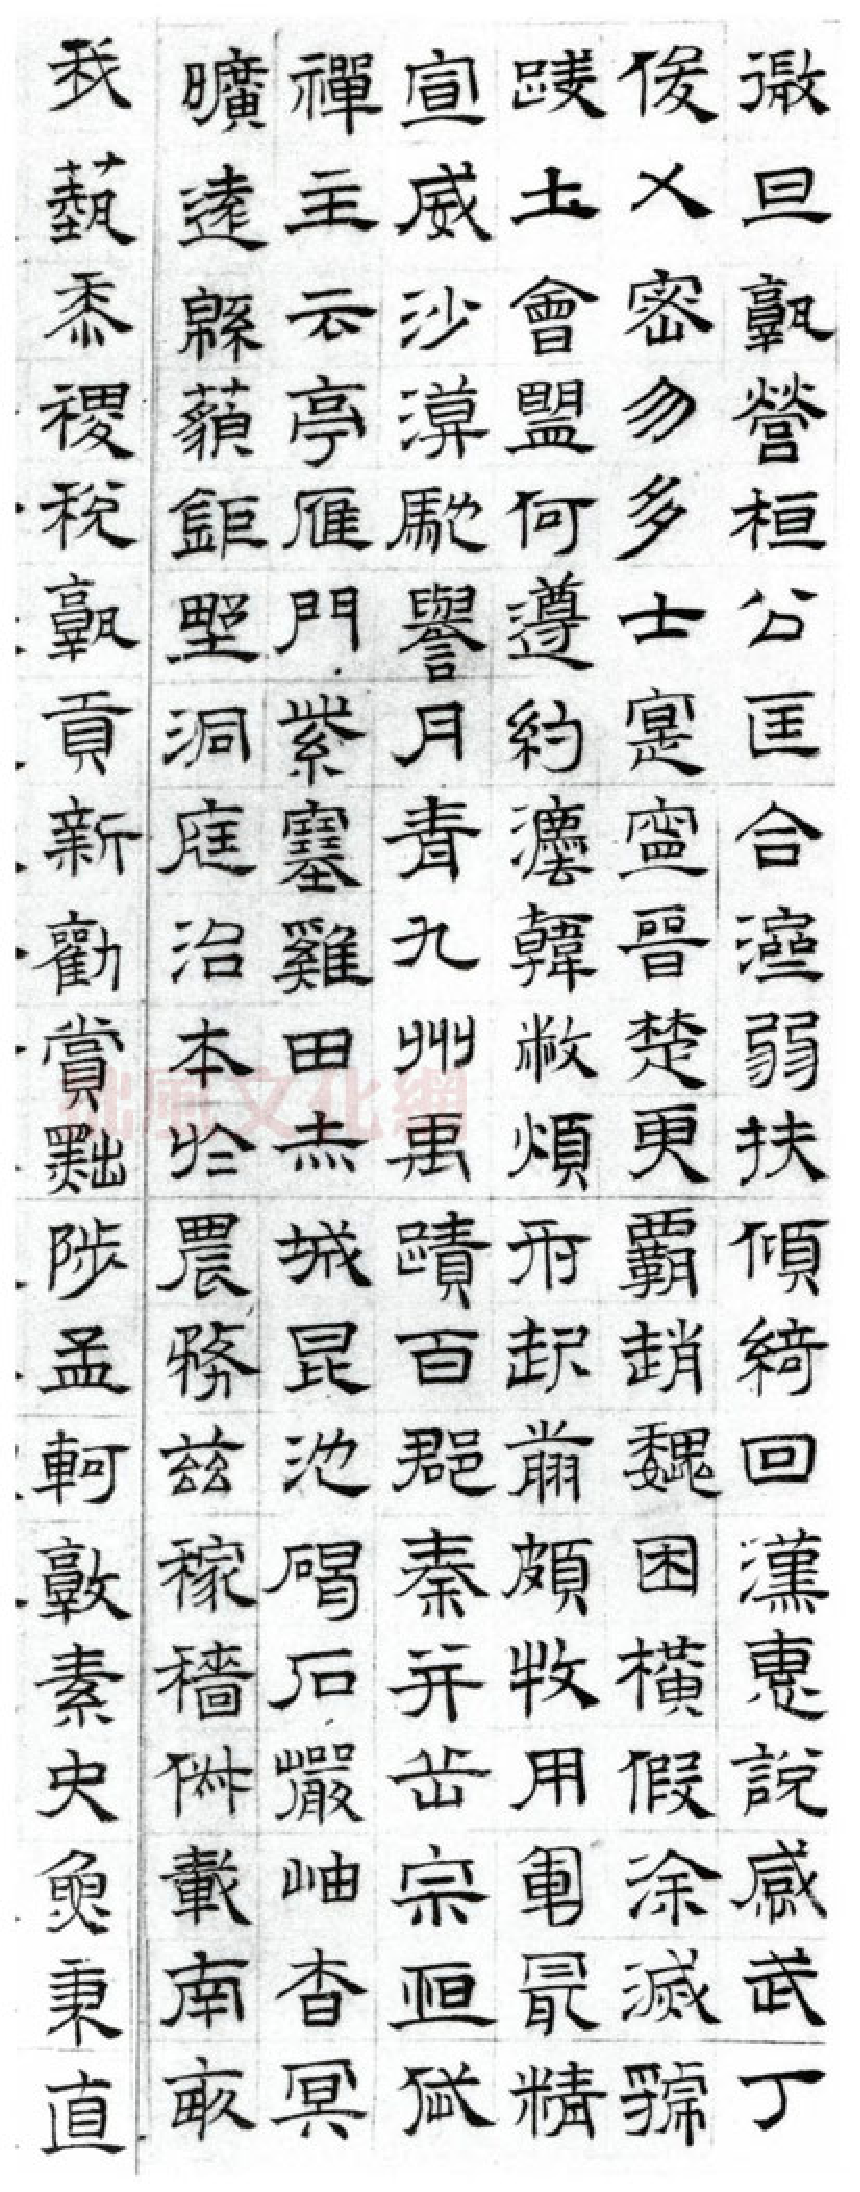 微旦孰營桓公匡合濟弱扶傾綺回漢惠說感武丁
俊乂密勿多士寔寧晉楚更霸趙魏困橫假涂滅虢
踐土會盟何遵約灋韓敝煩刑起翦頗牧用軍最精
宣威沙漠馳譽丹青九州禹蹟百郡秦并岳宗恆岱
禪主云亭雁門紫塞雞田赤城昆池碣石巖岫杳冥
曠遠緜藐鉅野洞庭治本於農務茲稼穡俶載南畝
我藝黍稷稅孰貢新勸賞黜陟孟軻敦素史魚秉直
拙風文化網